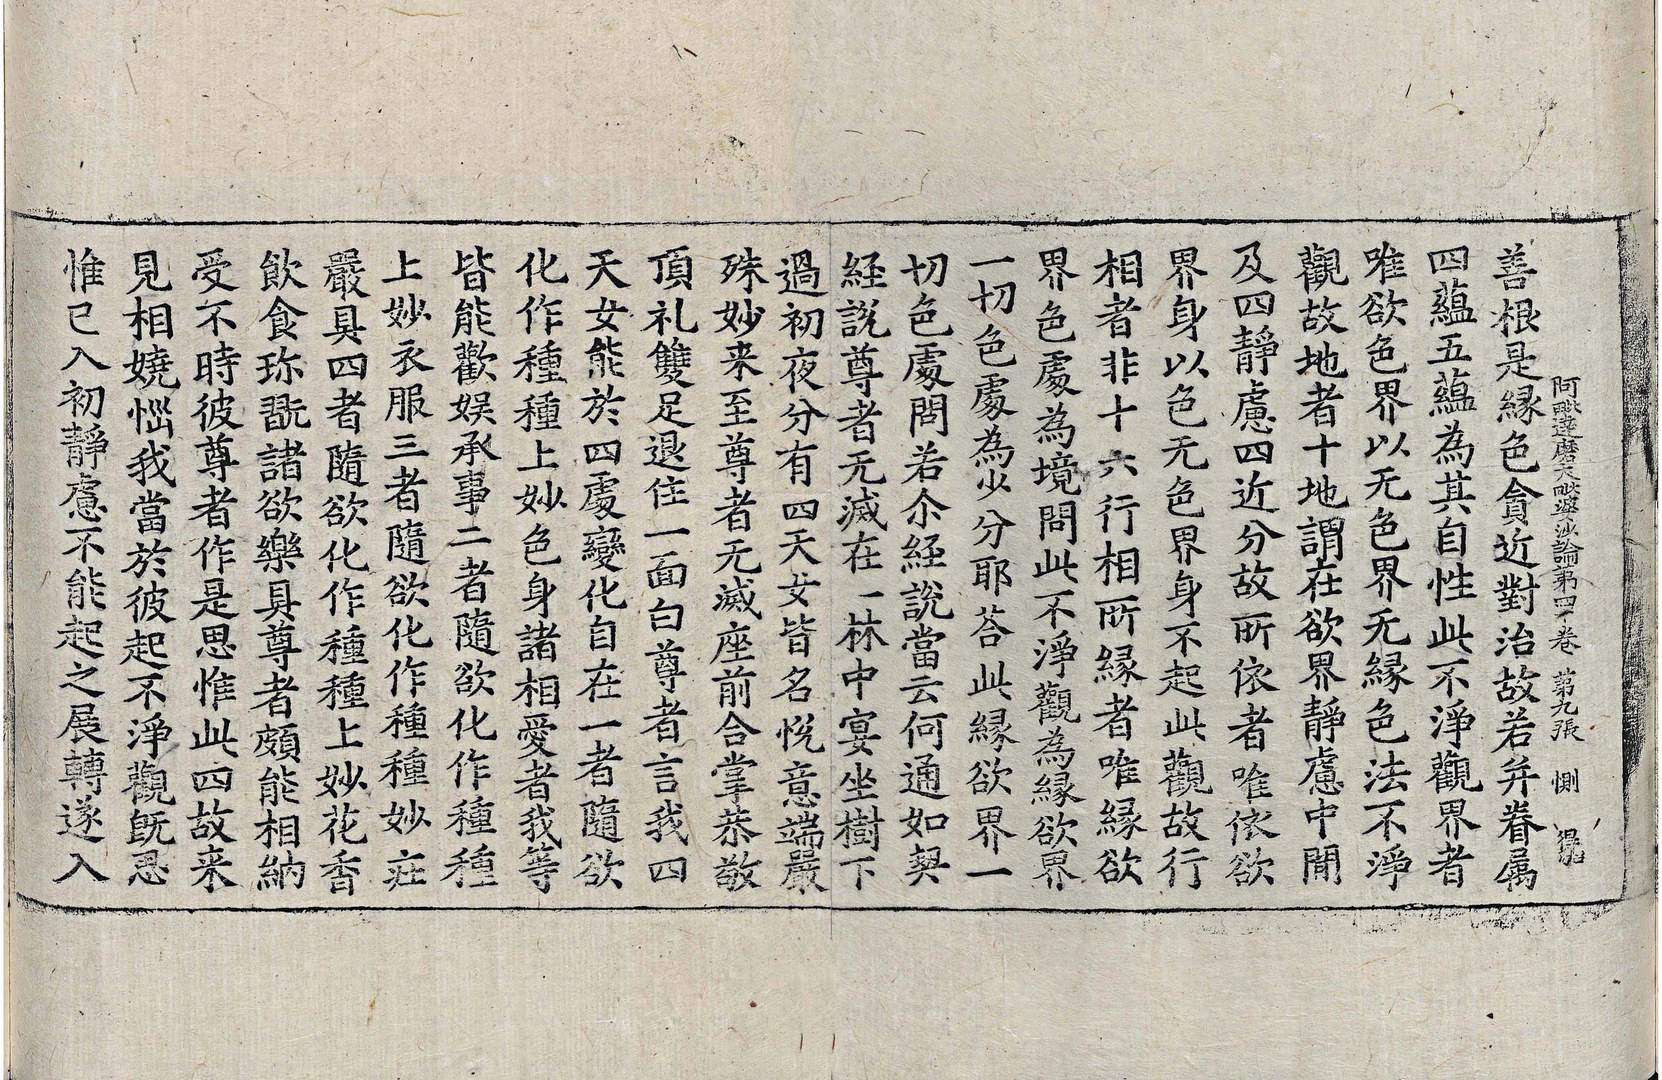 阿毗達磨大毗婆沙論第四十卷 第九張 惻
善根是縁色貪近對治故若并眷属
四蘊五蘊為其自性此不淨觀界者
唯欲色界以无色界无縁色法不淨
觀故地者十地謂在欲界靜慮中閒
及四靜慮四近分故所依者唯依欲
界身以色无色界身不起此觀故行
相者非十六行相所縁者唯縁欲
界色處為境問此不淨觀為縁欲界
一切色處為少分耶荅此縁欲界一
切色處問若尒経說當云何通如契
経說尊者无滅在一林中宴坐樹下
過初夜分有四天女皆名悅意端嚴
殊妙来至尊者无滅座前合掌恭敬
頂礼雙足退住一面白尊者言我四
天女能於四處變化自在一者隨欲
化作種種上妙色身諸相愛者我等
皆能歡娱承事二者隨欲化作種種
上妙衣服三者隨欲化作種種妙疘
嚴具四者隨欲化作種種上妙花香
飲食珎翫諸欲樂具尊者頗能相納
受不時彼尊者作是思惟此四故来
見相嬈惱我當於彼起不淨觀旣思
惟已入初靜慮不能起之展轉遂入